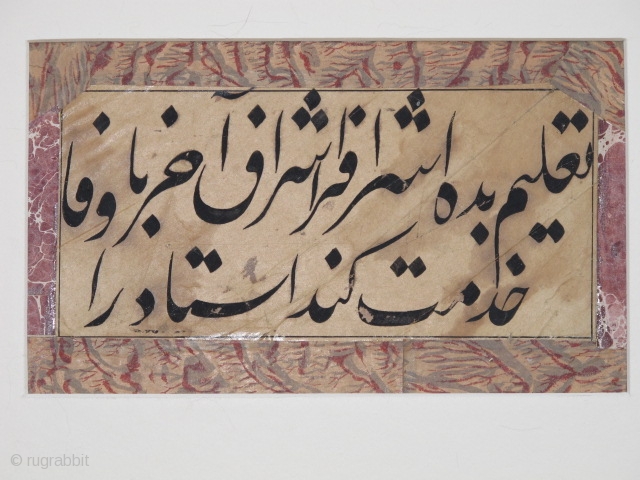 تعلیم بده اشراف را اشراف آخر با وفا
خدمت کند استاد را
© rugrabbit